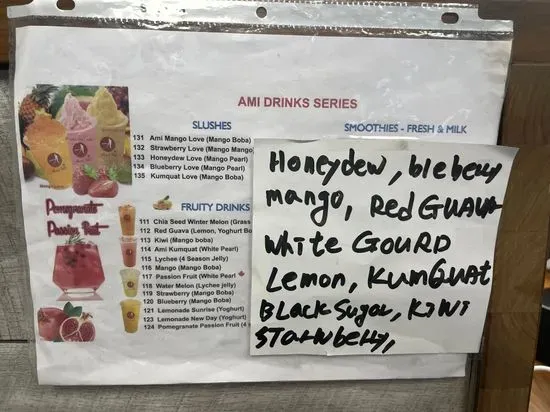 AMI DRINKS SERIES
SLUSHES
131 Ami Mango Love (Mango Boba)
132 Strawberry Love (Mango Mango
133 Honeydew Love (Mango Pearl)
134 Blueberry Love (Mango Pearl)
135 Kumquat Love (Mango Boba)
FRUITY DRINKS
111 Chia Seed Winter Melon (Grass
112 Red Guava (Lemon, Yoghurt Bo
113 Kiwi (Mango boba)
114 Ami Kumquat (White Pearl)
115 Lychee (4 Season Jelly)
116 Mango (Mango Boba)
117 Passion Fruit (White Pearl)
118 Water Melon (Lychee jelly)
119 Strawberry (Mango Boba)
120 Blueberry (Mango Boba)
121 Lemonade Sunrise (Yoghurt)
123 Lemonade New Day (Yoghurt)
124 Pomegranate Passion Fruit (4
Pomegranate
Passion Fruit
SMOOTHIES - FRESH & MILK
Honeydew, bleberry
mango, Red GUAVA
White GOURD
Lemon, KUMGUAT
BLACK Sugar, KiWi
STARWberry,